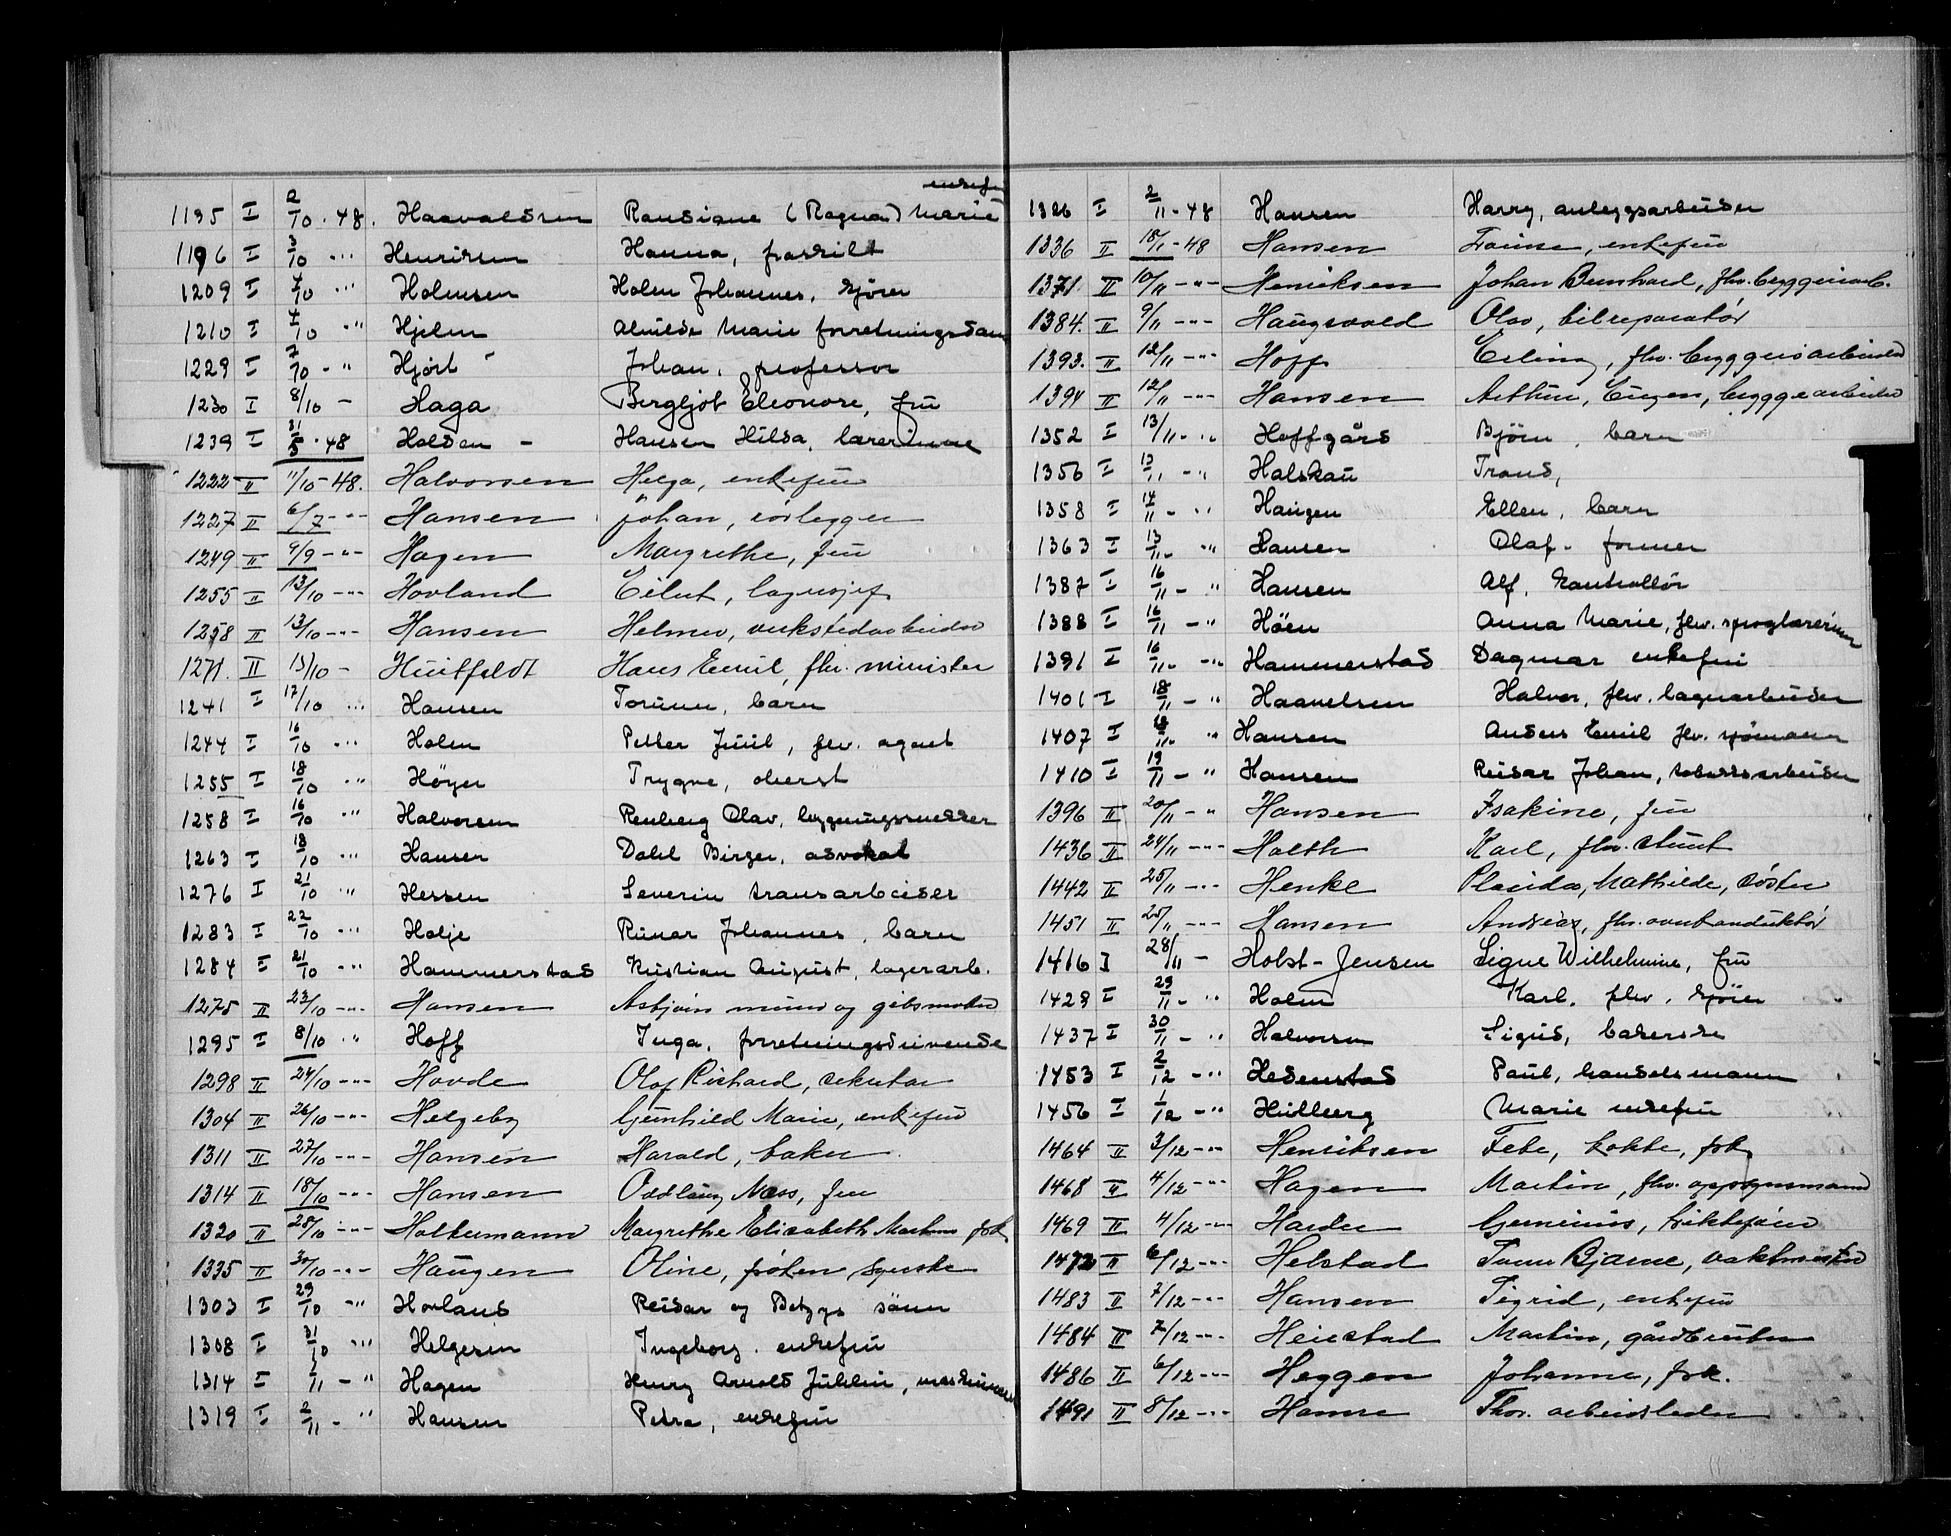 enkefru
1195 I 2/10 · 48. Haavaldsen Randiane (Ragna) Marie
1196 I 3/10 - " Henriksen Hanna, fraskilt
1209 I 4/10 " Holmsen Holm Johannes, kjører
1210 I 4/10 - " Hjelm Alvilde Marie forretningsdame
1229 I 7/10 - " Hjort Johan, professor
1230 I 8/10 - Haga Bergljot Eleonore, fru
1239 I 31/5 · 48 Holden - Hansen Hilda, lærerinne
1222 II 11/10 - 48. Halvorsen Helga, enkefru
1227 II 6/7 - " Hansen Johan, rørlegger
1249 II 9/9 - " Hagen Margrethe, fru
1255 II 13/10 - " Hovland Eilert, lagersjef
1258 II 13/10 - " Hansen Helmer, verkstedarbeider
1271. II 15/10 - Huitfeldt Hans Emil, fhv. minister
1241 I 17/10 " Hansen Torunn, barn
1244 I 16/10 - " Holm Petter Juul, fhv. agent
1255 I 18/10 " Höyer Trygve, oberst
1258 I 16/10 " Halvorsen Renberg Olav, bygningssnekker
1263 I 18/10 " Hansen Dahl Birger, advokat
1276 I 21/10 " Hessen Severin transarbeider
1283 I 22/10 - " Holje Runar Johannes, barn
1284 I 21/10 " Hammerstad Kristian August, lagerarb.
1275 II 23/10 - " Hansen Asbjørn murer og gibsmaker
1295 I 8/10 " Hoff Inga, forretningsdrivende
1298 II 24/10 - " Hovde Olaf Richard, sekretær
1304 II 26/10 - " Helgeby Gunhild Marie, enkefru
1311 II 27/10 - " Hansen Harald, baker
1314 II 18/10 - " Hansen Oddlaug Næss, fru
1320 II 28/10 - " Holtermann Margrethe Elisabeth Martens frk.
1335 II 30/10 - " Haugen Oline, frøken syerske
1303 I 29/10 " Hovland Reidar og Betzys sønn
1308 I 31/10 " Helgesen Ingeborg. enkefru
1314 I 1/11 - " Hagen Henry Arnold Juhlin, maskinmann
1319 I 2/11 - " Hansen Petra, enkefru
1326 I 2/11 - 48 Hansen Harry, anleggsarbeider
1336 II 18/1 - 48 Hansen Louise, enkefru
1371 II 10/11 - " Henriksen Johan Bernhard, fhv. bryggeriarb.
1384. II 9/11 - " Haugsvold Olav, bilreparatør
1393. II 12/11 - " Hoff Erling, fhv. bryggeriarbeider
1394 II 12/11 - " Hansen Arthur, Eugen, bryggearbeider
1352 I 13/11 - " Hoffgård Bjørn, barn
1356 I 13/11 - " Halskau Trond,
1358 I 14/11 - " Haugen Ellen, barn
1363 I 13/11 - " Hansen Olaf - former
1387 I 16/11 - " Hansen Alf, kontrollør
1388 I 16/11 - " Höen Anna Marie, fhv. språglærerinne
1391 I 16/11 - " Hammerstad Dagmar enkefru
1401 I 18/11 - " Haavelsen Halvor, fhv. lagerarbeider
1407 I 18/11 - " Hansen Anders Emil fhv. sjömann
1410 I 19/11 - " Hansen Reidar Johan, tobakksarbeider
1396 II 20/11 - " Hansen Isakine, fru
1436 II 24/11 - " Holth Karl, fhv. stuert
1442 II 25/11 - " Henke Placida, Mathilde, søster
1451 II 25/11 - " Hansen Andreas, fhv. overkonduktør
1416 I 28/11 - Holst-Jensen Signe Wilhelmine, fru
1429 I 29/11 - " Holm Karl. fhv. kjører
1437 I 30/11 - " Halvorsen Sigurd, bakerske
1453 I 2/12 - " Hedenstad Paul, handelsmann
1456 I 1/12 - " Hulberg Marie enkefru
1464 II 3/12 - " Henriksen Febe, kokke, frk
1468 II 4/12 - " Hagen Martin, fhv. oppsynsmann
1469 II 4/12 - " Harder Geminius, frikkefører
1472 II 6/12 - " Helstad Bjarne, vaktmester
1483 II 7/12 - " Hansen Sigrid, enkefru
1484 II 7/12 - " Heiestad Martin, gårdbruker
1486 II 6/12 - " Heggen Johanna, frk.
1491 II 8/12 - " Hamre Thor. arbeidsleder